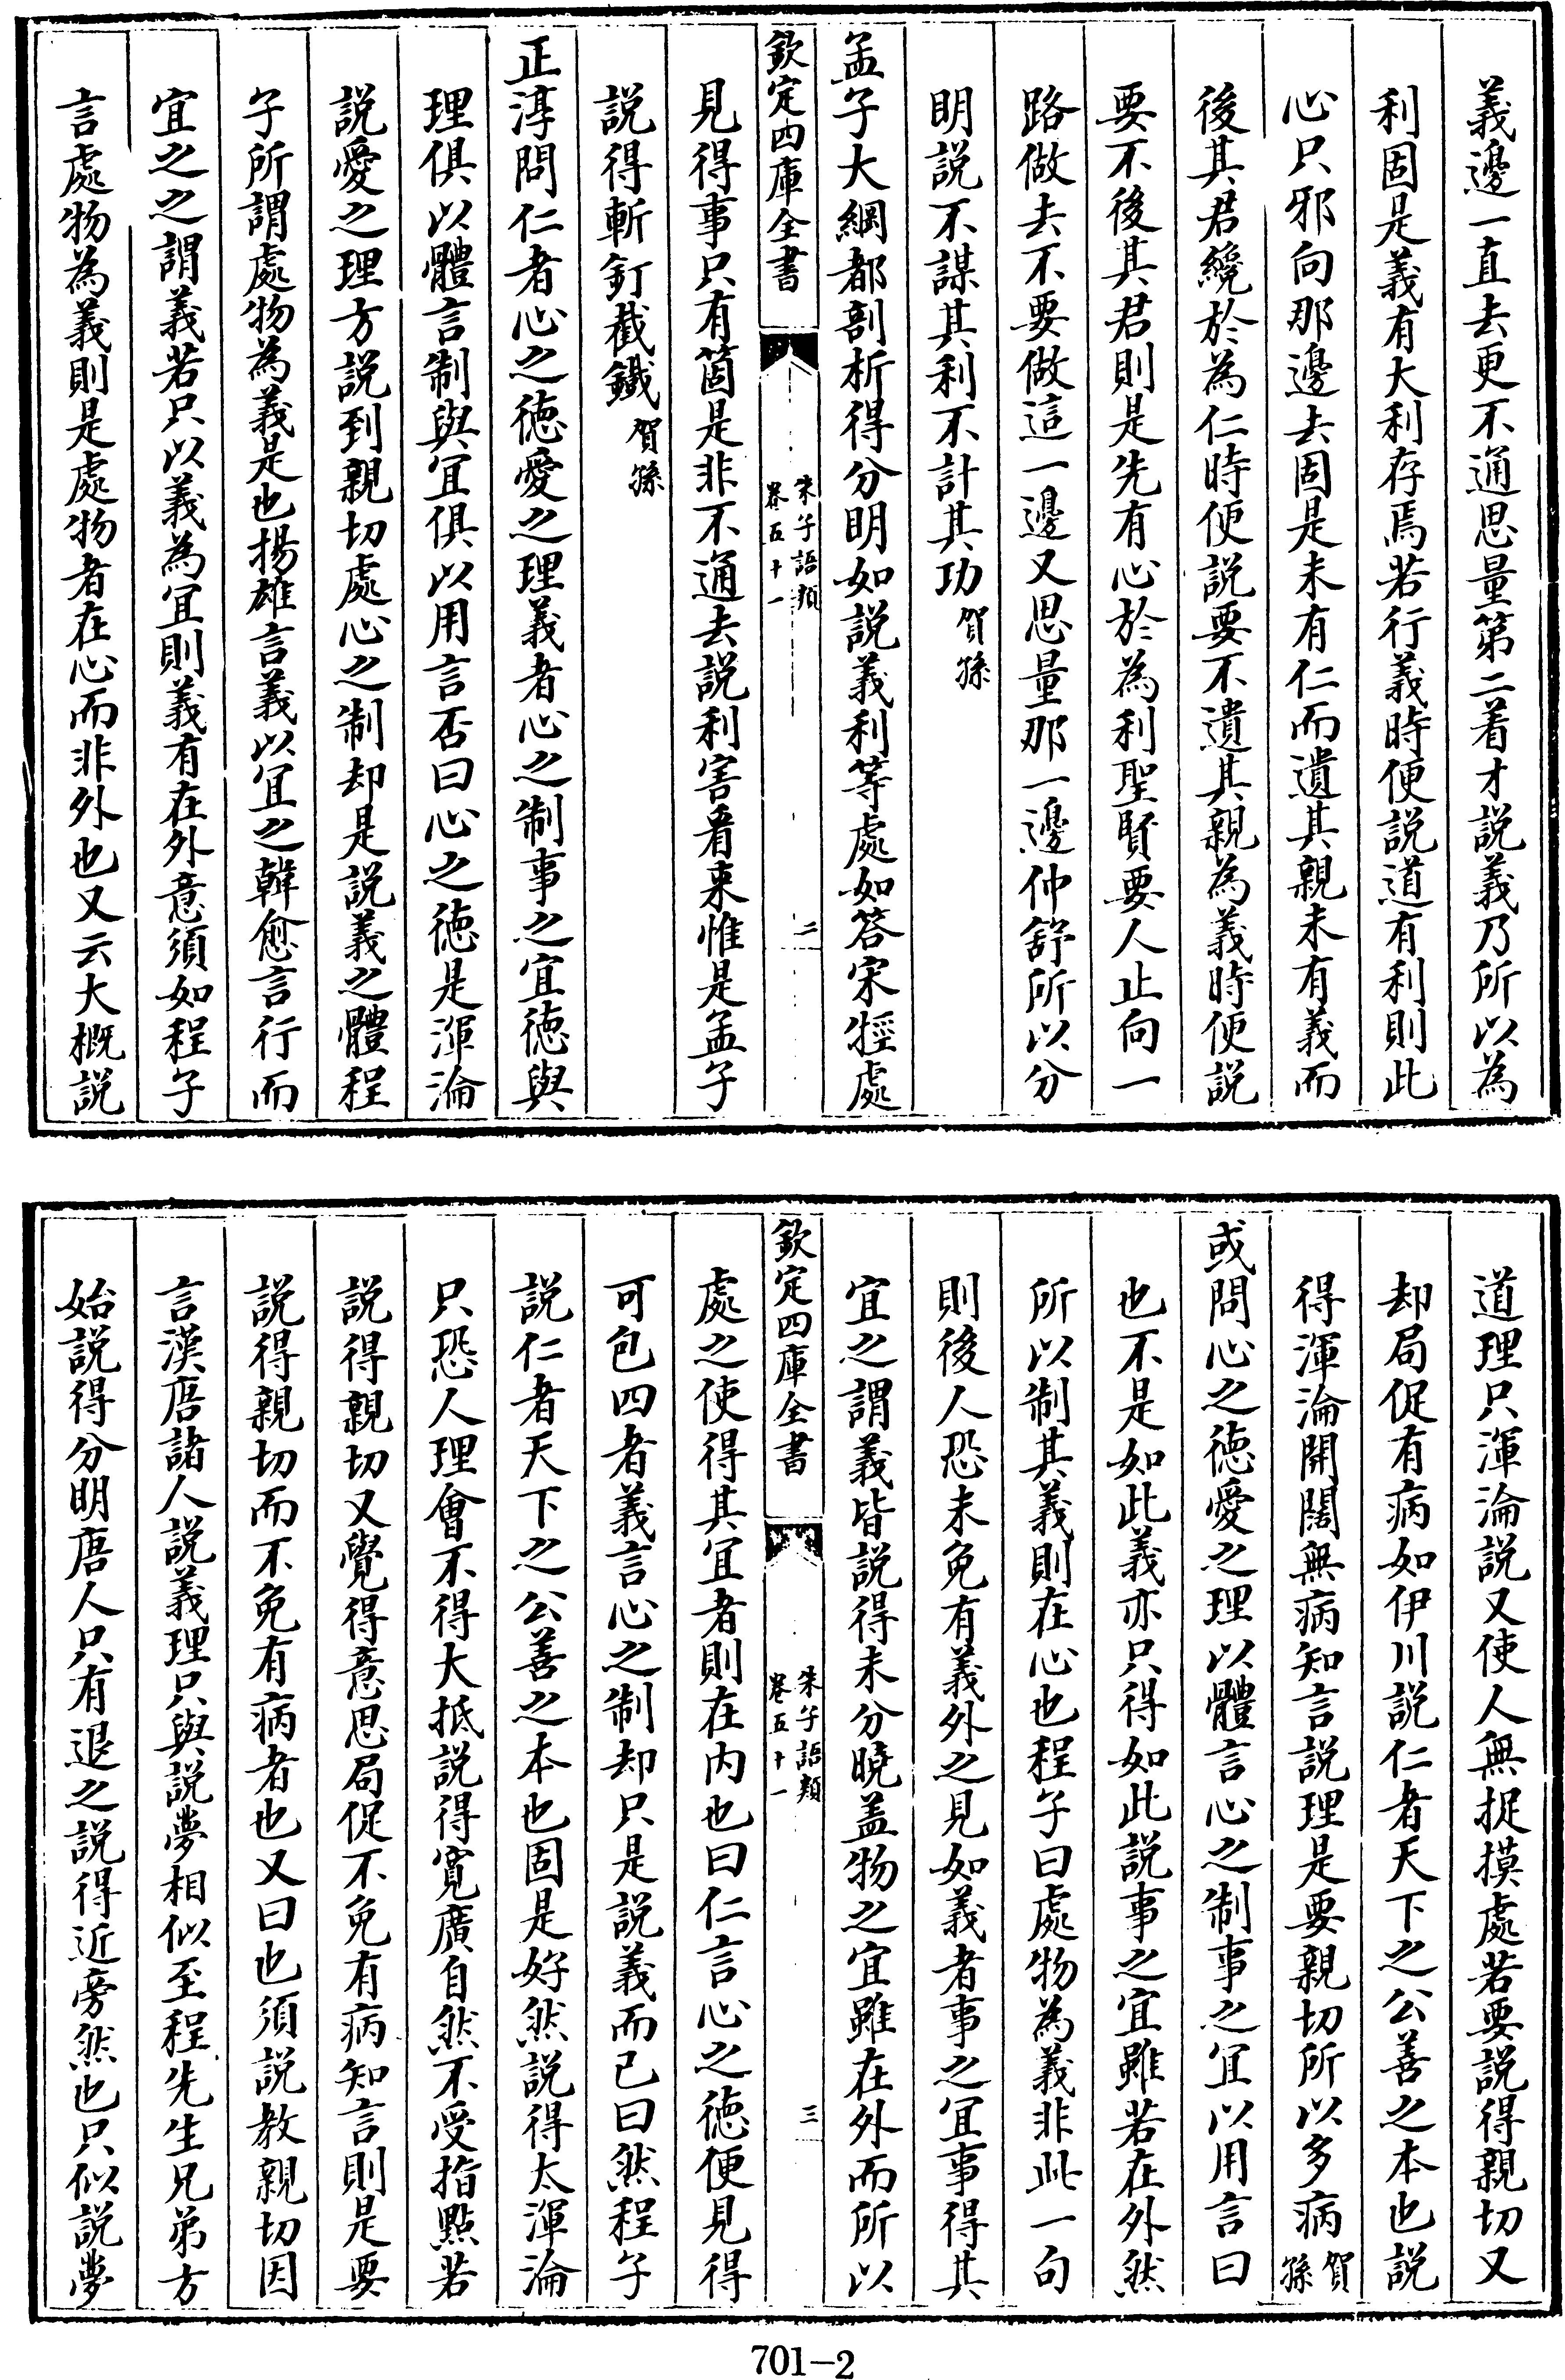 義邊一直去更不通思量第二着才説義乃所以為
利固是義有大利存焉若行義時便説道有利則此
心只邪向那邊去固是未有仁而遺其親未有義而
後其君纔於為仁時便説要不遺其親為義時便説
要不後其君則是先有心於為利聖賢要人止向一
路做去不要做這一邊又思量那一邊仲舒所以分
明説不謀其利不計其功賀孫
孟子大綱都剖析得分明如説義利等處如答宋牼處
欽定四庫全書
朱子語類
卷五十一
二
見得事只有箇是非不通去説利害看来惟是孟子
説得斬釘截鐵賀孫
正淳問仁者心之徳愛之理義者心之制事之宜徳與
理俱以體言制與宜俱以用言否曰心之徳是渾淪
説愛之理方説到親切處心之制却是説義之體程
子所謂處物為義是也揚雄言義以宜之韓愈言行而
宜之之謂義若只以義為宜則義有在外意須如程子
言處物為義則是處物者在心而非外也又云大概説
道理只渾淪説又使人無捉摸處若要説得親切又
却局促有病如伊川説仁者天下之公善之本也説
得渾淪開闊無病知言説理是要親切所以多病賀孫
或問心之徳愛之理以體言心之制事之宜以用言曰
也不是如此義亦只得如此説事之宜雖若在外然
所以制其義則在心也程子曰處物為義非此一句
則後人恐未免有義外之見如義者事之宜事得其
宜之謂義皆説得未分曉盖物之宜雖在外而所以
欽定四庫全書
朱子語類
卷五十一
三
處之使得其宜者則在内也曰仁言心之徳便見得
可包四者義言心之制却只是説義而已曰然程子
説仁者天下之公善之本也固是好然説得太渾淪
只恐人理㑹不得大抵説得寛廣自然不受指點若
説得親切又覺得意思局促不免有病知言則是要
説得親切而不免有病者也又曰也須説教親切因
言漢唐諸人説義理只與説夢相似至程先生兄弟方
始説得分明唐人只有退之説得近旁然也只似説夢
701-2